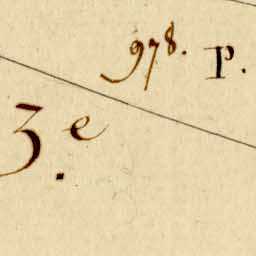 978. P.
3.e